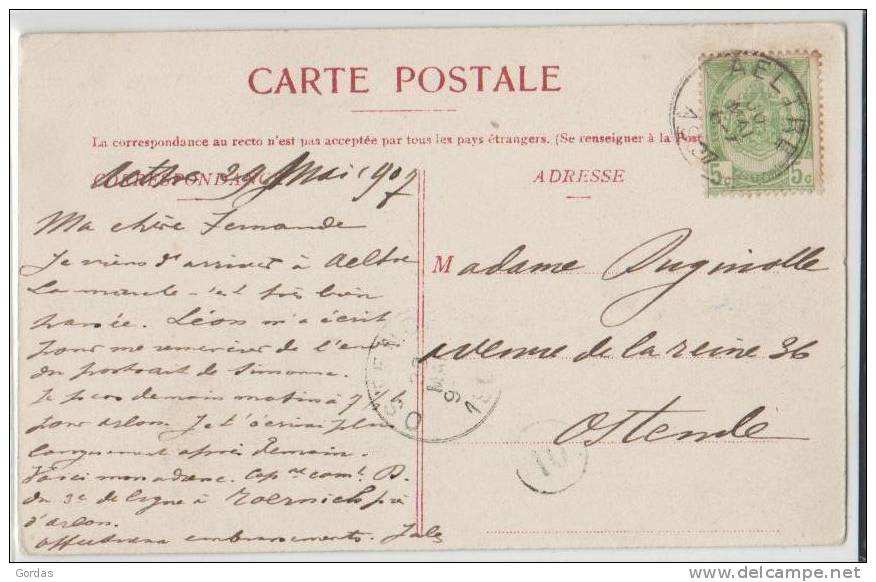 CARTE POSTALE
La correspondance au recto n'est pas acceptée par tous les pays étrangers. (Se renseigner à la Post
CORRESPONDANCE
ADRESSE
Aeltre 29 Mai 1907
Ma chère Fernande
Je viens d'arriver à Aeltre
La marche s'est très bien
passée. Léon m'a écrit
pour me remercier de l'envoi
du portrait de Simonne.
Je pars demain matin à 7 h
pour Arlon. Je t'écrirai plus
longuement après demain.
Voici mon adresse. Cap ne comt. D.
du 3e de ligne à près
d'Arlon.
Affectueux embrassements. Jules
Madame
avenue de la reine 36
Ostende
AELTRE
5c 5c
OSTENDE
10
Gordas
delcampe.net